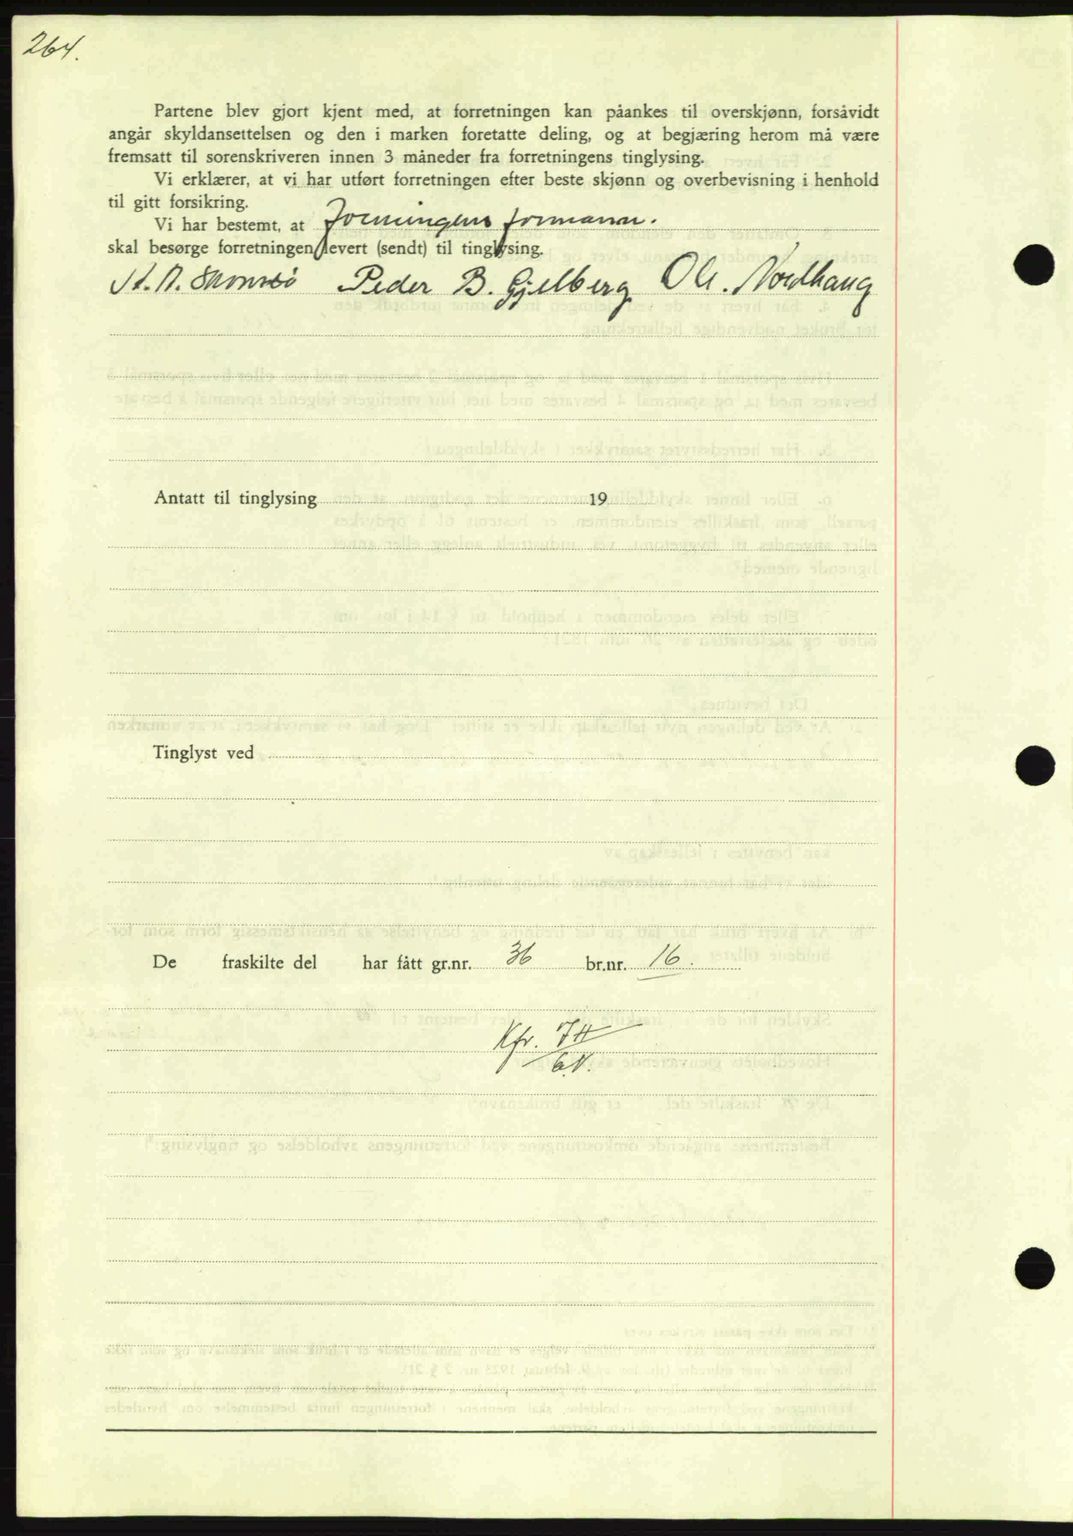 264.
Partene blev gjort kjent med, at forretningen kan påankes til overskjønn, forsåvidt
angår skyldansettelsen og den i marken foretatte deling, og at begjæring herom må være
fremsatt til sorenskriveren innen 3 måneder fra forretningens tinglysing.
Vi erklærer, at vi har utført forretningen efter beste skjønn og overbevisning i henhold
til gitt forsikring.
Vi har bestemt, at formann.
skal besørge forretningen levert (sendt) til tinglysing.
Peder B. Gjelberg Ole. Nordhaug
Antatt til tinglysing 19
Tinglyst ved
De fraskilte del har fått gr.nr. 36 br.nr. 16.
Kfr.